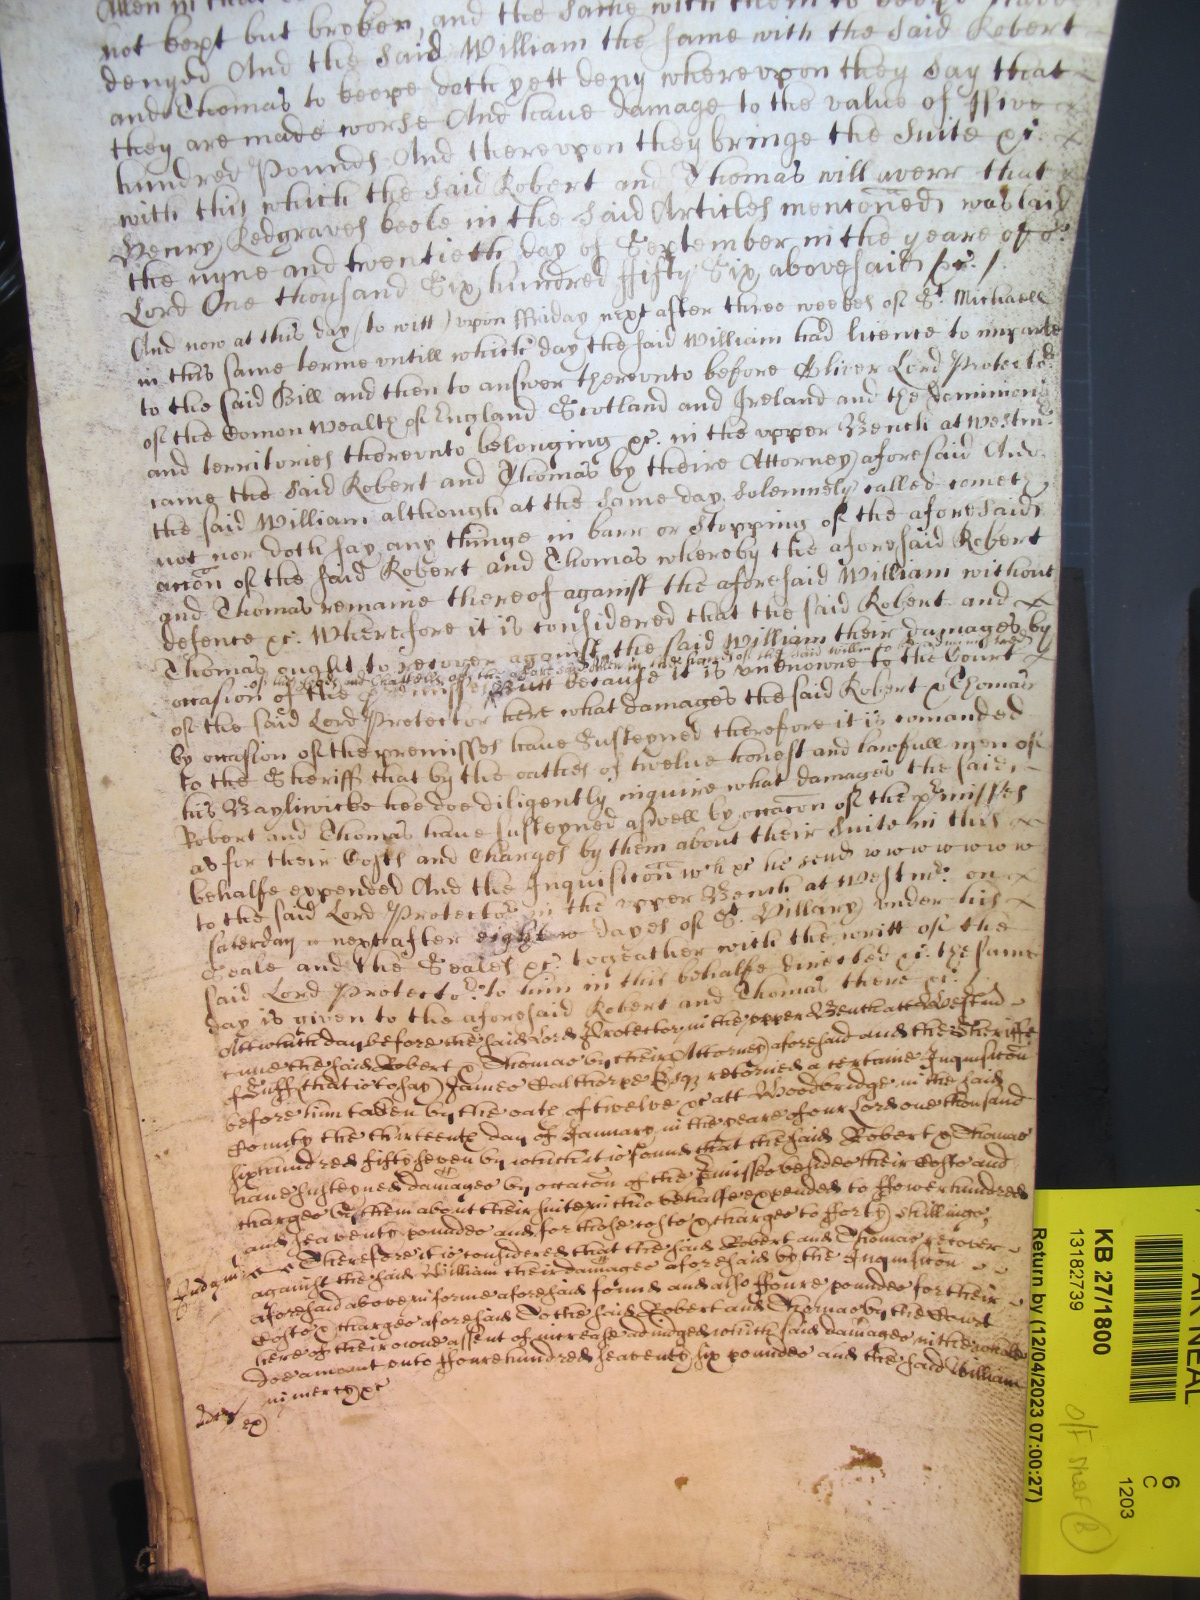 Allen in that
not kept but broken, and the same with them to keepe
denyed And the said William the same with the said Robert
and Thomas to keepe doth yett deny whereupon they say that
they are made worse And have damage to the value of ffive
hundred Pounds And thereupon they bringe the suite &c.
with this which the said Robert and Thomas will averr that
Henry Redgraves keele in the said Articles menconed was laid
the nyne and twentieth day of September in the yeare of or.
Lord One thousand Six hundred ffifty Six abovesaid &c. /
And now at this day (to witt) upon ffriday next after three weekes of St. Michaell
in this same terme untill which day the said William had licence to imparle
to the said Bill and then to answer thereunto before Oliver Lord Protector
of the Comon wealth of England Scotland and Ireland and the dominions
and territories thereunto belonging &c. in the upper Bench at Westmr.
came the said Robert and Thomas by theire Attorney aforesaid And
the said William although at the same day solemnely called cometh
not nor doth say any thinge in barr or stopping of the aforesaid
accon of the said Robert and Thomas whereby the aforesaid Robert
and Thomas remaine thereof against the aforesaid William without
defence &c. Wherefore it is considered that the said Robert and
Thomas ought to recover against the said William their damages by
of the goods and Chattells of the aforesaid Allen in the hands of the said William to be administred
occasion of the premisses Butt because it is unknowne to the Court
of the said Lord Protector here what damages the said Robert & Thomas
by occasion of the premisses have susteyned therefore it is comanded
to the Sheriff that by the oathes of twelve honest and lawfull men of
his Bayliwicke hee doe diligently inquire what damages the said
Robert and Thomas have susteyned aswell by occacon of the premisses
as for their Costs and Charges by them about their suite in this
behalfe expended And the Inquisicon wch &c he send
to the said Lord Protector in the upper Bench at Westmr. on
Saterday next after eight dayes of St. Hillary under his
Seale and the Seales &c. togeather with the writt of the
said Lord Protector to him in this behalfe directed &c. the same
day is given to the aforesaid Robert and Thomas there &c. /
Att which day before the said Lord Protector in the upper Bench att Westmr
came the said Robert & Thomas by their Attorney aforesaid and the Sheriffe
of Suff (that is to say) James Calthorpe Esqr returned a certaine Inquisicon
before him taken by the oath of twelve &c att Woodbridge in the said
County the thirteenth day of January in the yeare of our Lord one thousand
six hundred fifty seven by which it is found that the said Robert & Thomas
have susteyned damages by occacon of the premisses besides their Costs and
charges by them about their suite in this behalfe expended to ffower hundred
and seaventy poundes and for those costs & charges to fforty shillings,
Judgmt Therefore it is considered that the said Robert and Thomas recover
against the said William their damages aforesaid by the Inquisicon
aforesaid above in forme aforesaid found and also ffoure poundes for their
Costs & charges aforesaid To the said Robert and Thomas by the Court
here of their owne assent of increase adiudged which said damages in the whole
doe amount unto ffoure hundred seaventy six poundes and the said William
in mercy &c
KB 27/1800
13182739
Return by (12/04/2023 07:00:27)
6
C
1203